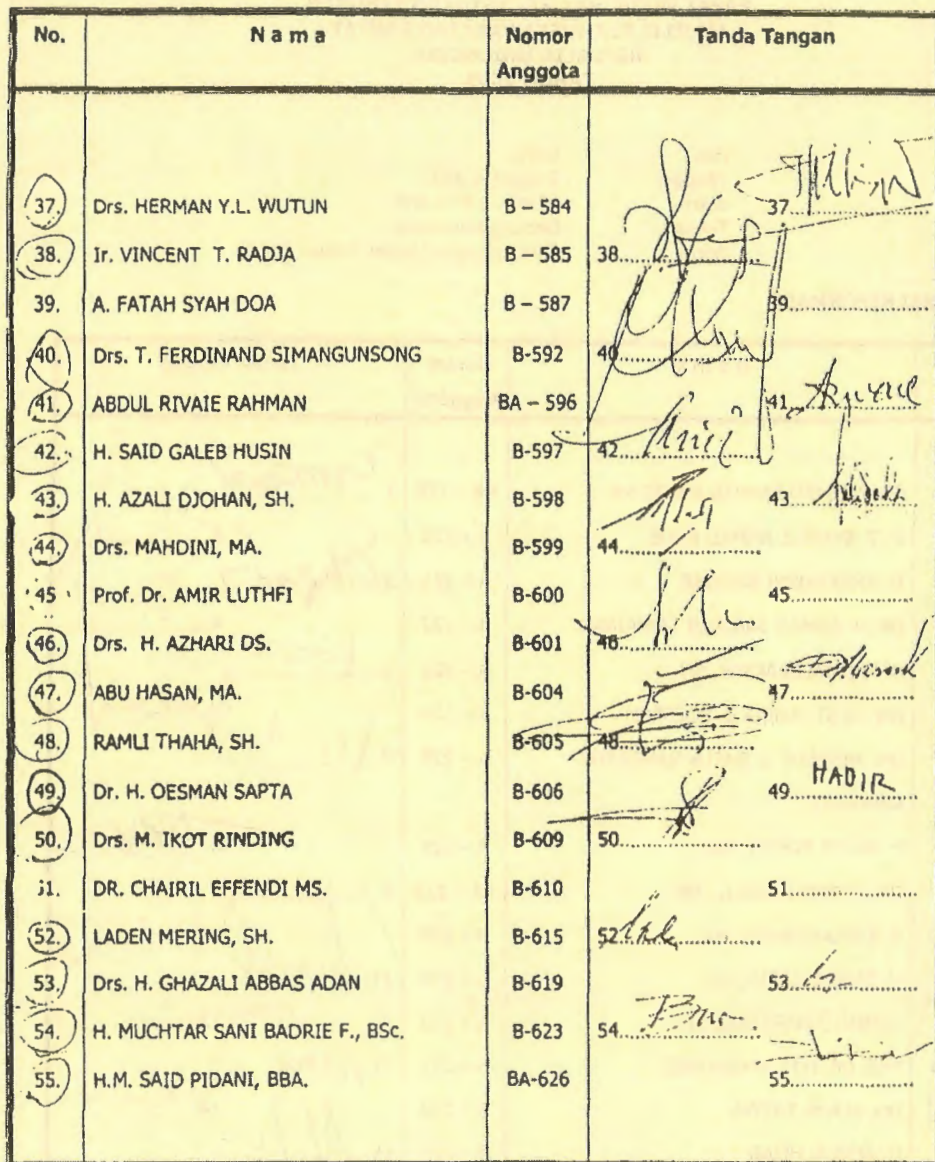 No. Nama Nomor Anggota Tanda Tangan
37. Drs. HERMAN Y.L. WUTUN B – 584 37
38. Ir. VINCENT T. RADJA B – 585 38
39. A. FATAH SYAH DOA B – 587 39
40. Drs. T. FERDINAND SIMANGUNSONG B-592 40
41. ABDUL RIVAIE RAHMAN BA – 596 41
42. H. SAID GALEB HUSIN B-597 42
43. H. AZALI DJOHAN, SH. B-598 43
44. Drs. MAHDINI, MA. B-599 44
45 Prof. Dr. AMIR LUTHFI B-600 45
46. Drs. H. AZHARI DS. B-601 46
47. ABU HASAN, MA. B-604 47
48. RAMLI THAHA, SH. B-605 48
49. Dr. H. OESMAN SAPTA B-606 49 HADIR
50. Drs. M. IKOT RINDING B-609 50
51. DR. CHAIRIL EFFENDI MS. B-610 51
52. LADEN MERING, SH. B-615 52
53. Drs. H. GHAZALI ABBAS ADAN B-619 53
54. H. MUCHTAR SANI BADRIE F., BSc. B-623 54
55. H.M. SAID PIDANI, BBA. BA-626 55